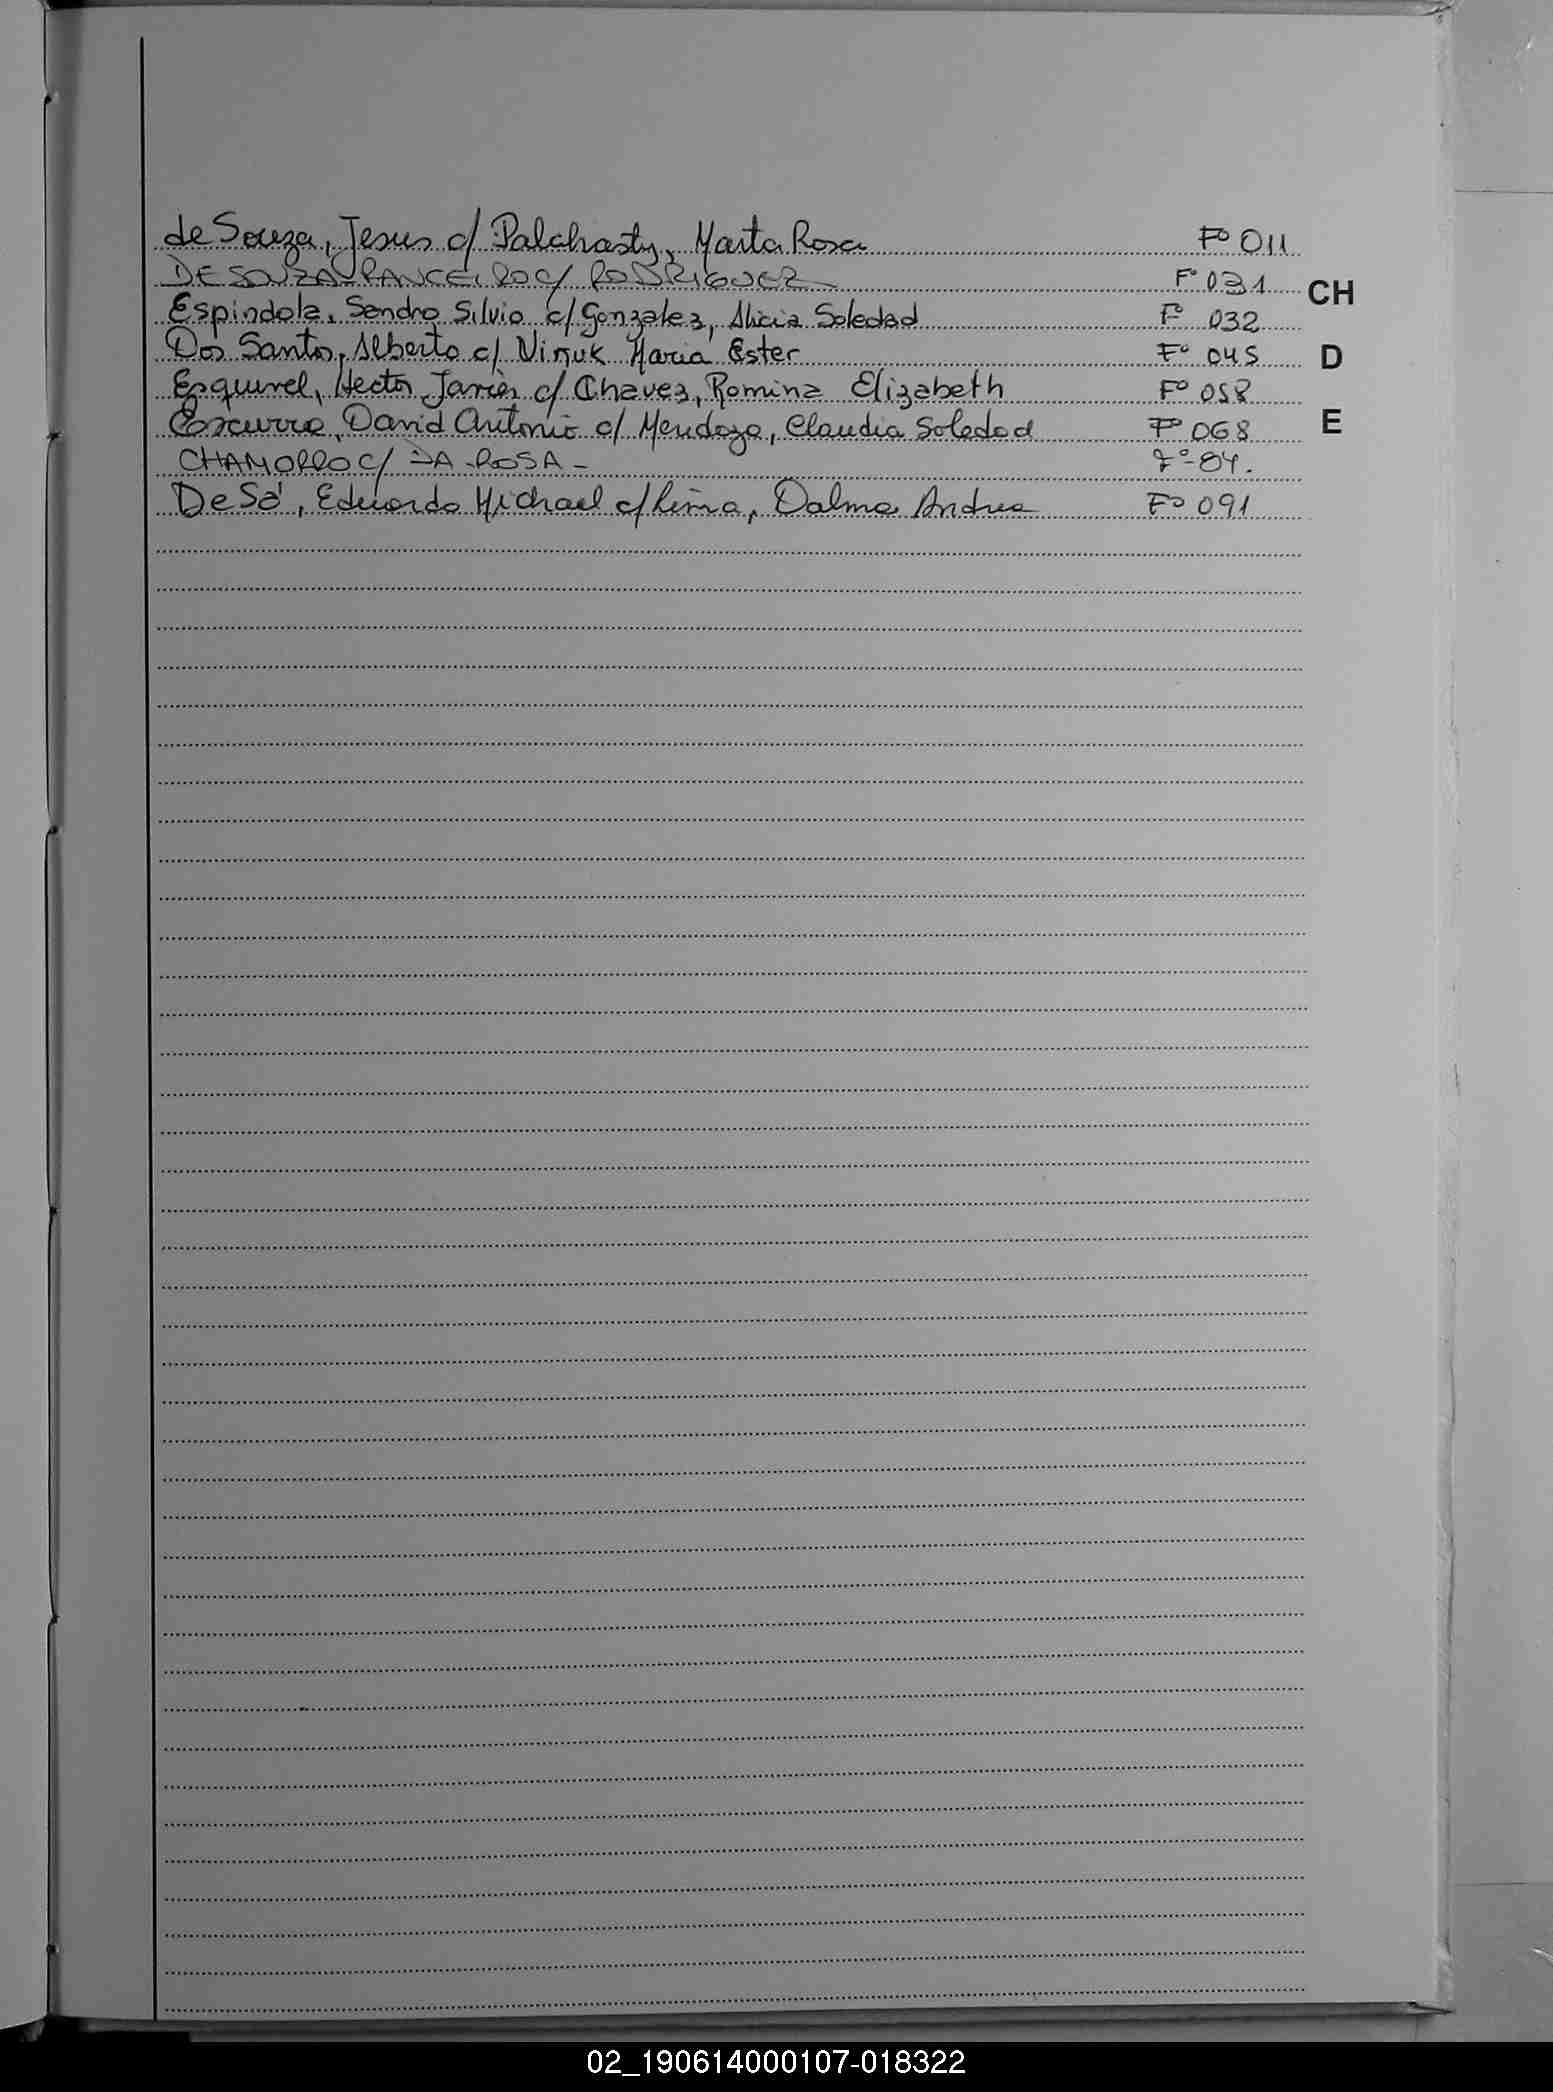 de Souza, Jesus c/ Palchasty, Marta Rosa Fº 011
DE SOUZA RANCEIRO C/ RODRIGUEZ Fº 031
CH
Espindola, Sandro Silvio c/ Gonzalez, Alicia Soledad Fº 032
Dos Santos, Alberto c/ Maria Ester Fº 045
D
Esquivel, Hector Javier c/ Chavez, Romina Elizabeth Fº 058
Escurra, David Antonio c/ Mendoza, Claudia Soledad Fº 068
E
CHAMORRO C/ DA ROSA - Fº-84.
De Sá, Eduardo Michael c/ Lima, Dalma Andrea Fº 091
02_190614000107-018322